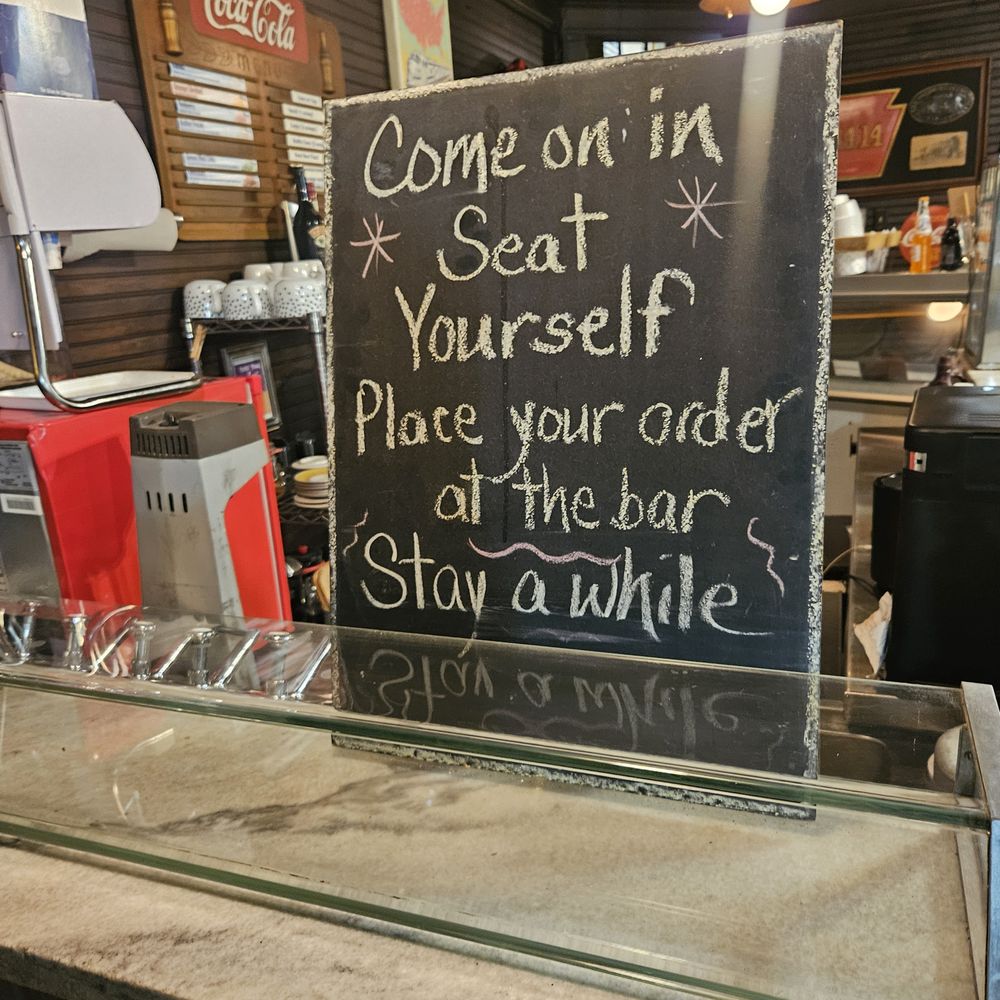 Coca-Cola
MENU
Come on in
Seat
Yourself
Place your order
at the bar
Stay a while